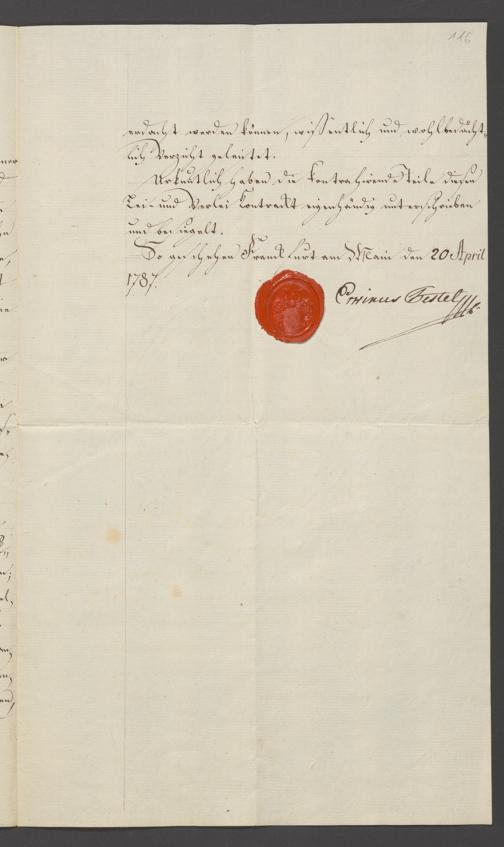 116
erdacht werden können, wissentlich und wohlbedächt-
lich Verzicht geleistet.
Urkuntlich haben die kontrahirende Teile diesen
Lei- und Verlei Kontrakt eigenhändig unterschrieben
und besiegelt.
So geschehen Frankfurt am Main den 20 April
1787.